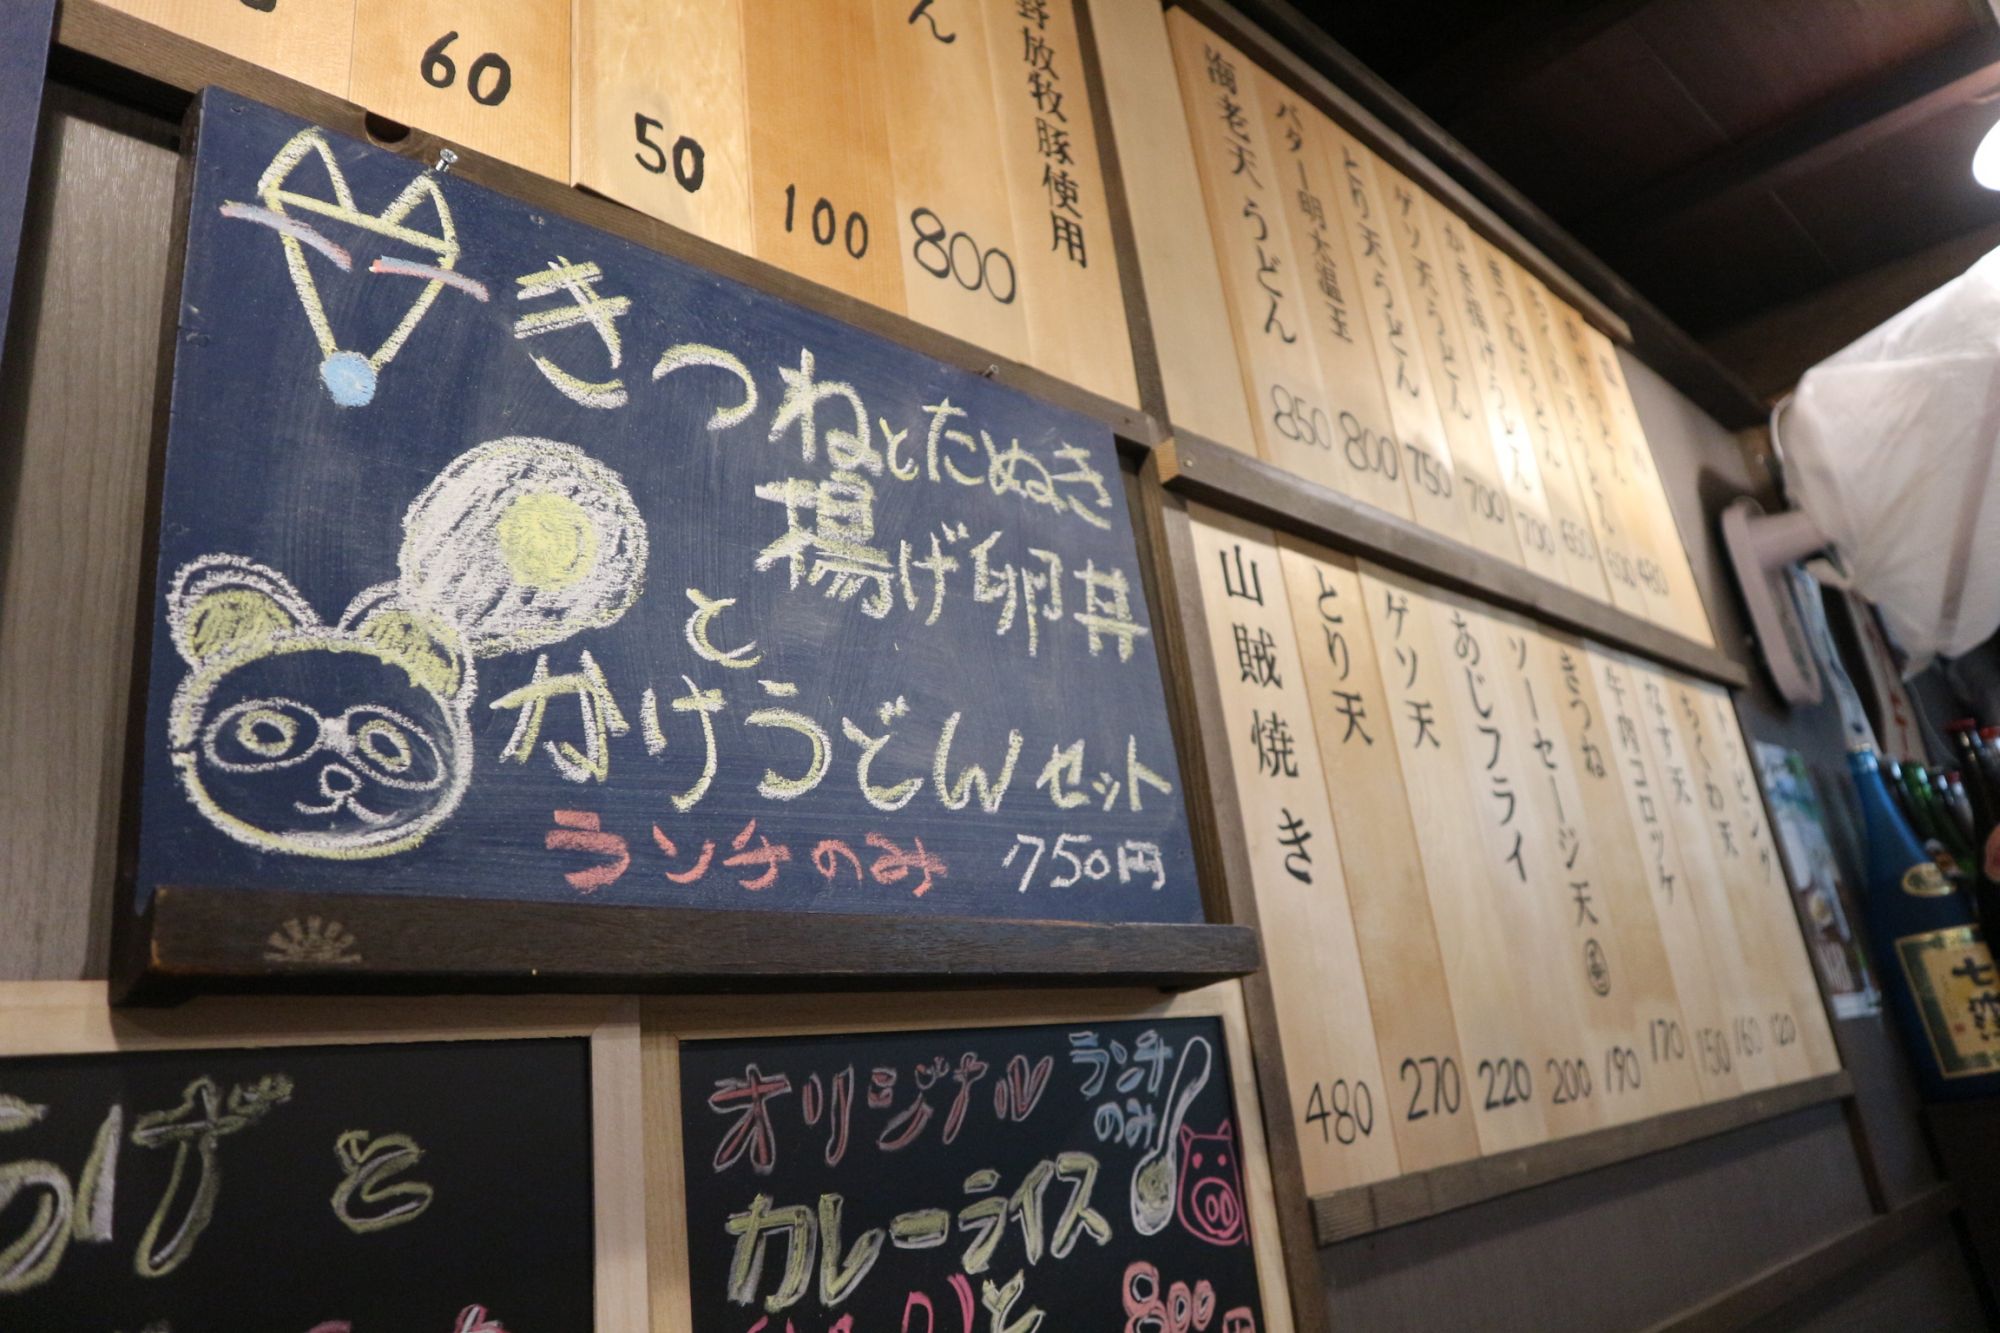 60
50
100
800
放牧豚使用
海老天うどん
850
バター明太温玉
800
とり天うどん
750
ゲソ天うどん
700
700
650
480
きつねとたぬき
揚げ卵丼
と
かけうどんセット
ランチのみ 750円
山賊焼き
480
とり天
270
ゲソ天
220
あじフライ
200
ソーセージ天
190
きつね
170
牛肉コロッケ
150
なす天
160
ちくわ天
120
トッピング
オリジナル
ランチ
のみ
カレーライス
800円
げと
七